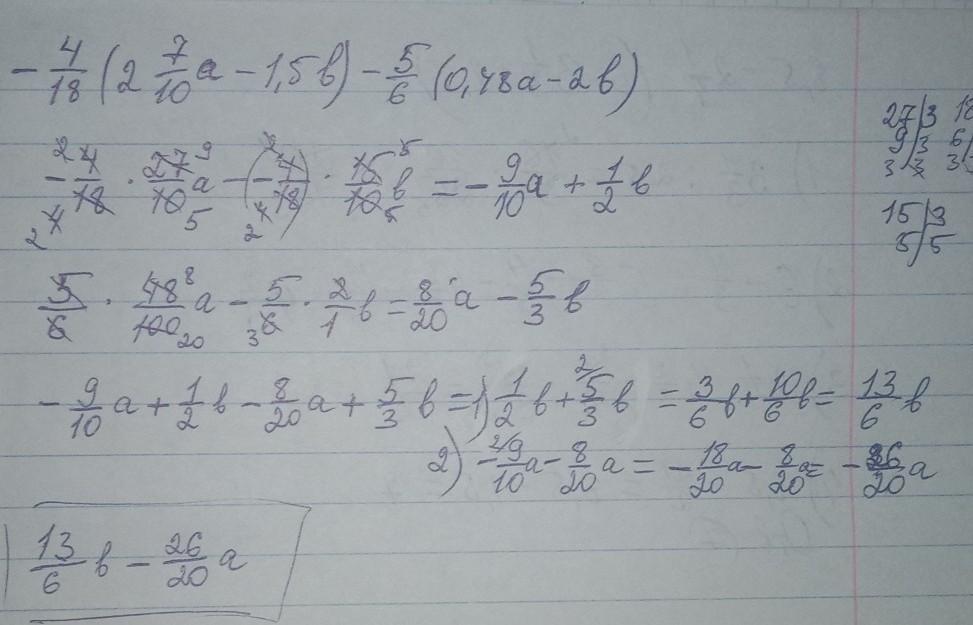 - 4/18 (2 7/10 a - 1,5 в) - 5/6 (0,48a - 2в)
- 4/18 · 27/10 a - (- 4/18) · 15/10 в = - 9/10 a + 1/2 в
5/6 · 48/100 a - 5/6 · 2/1 в = 8/20 a - 5/3 в
- 9/10 a + 1/2 в - 8/20 a + 5/3 в = 1) 1/2 в + 5/3 в = 3/6 в + 10/6 в = 13/6 в
2) - 9/10 a - 8/20 a = - 18/20 a - 8/20 a = - 26/20 a
13/6 в - 26/20 a
27|3 18
9|3 6
3|3 3
15|3
5|5